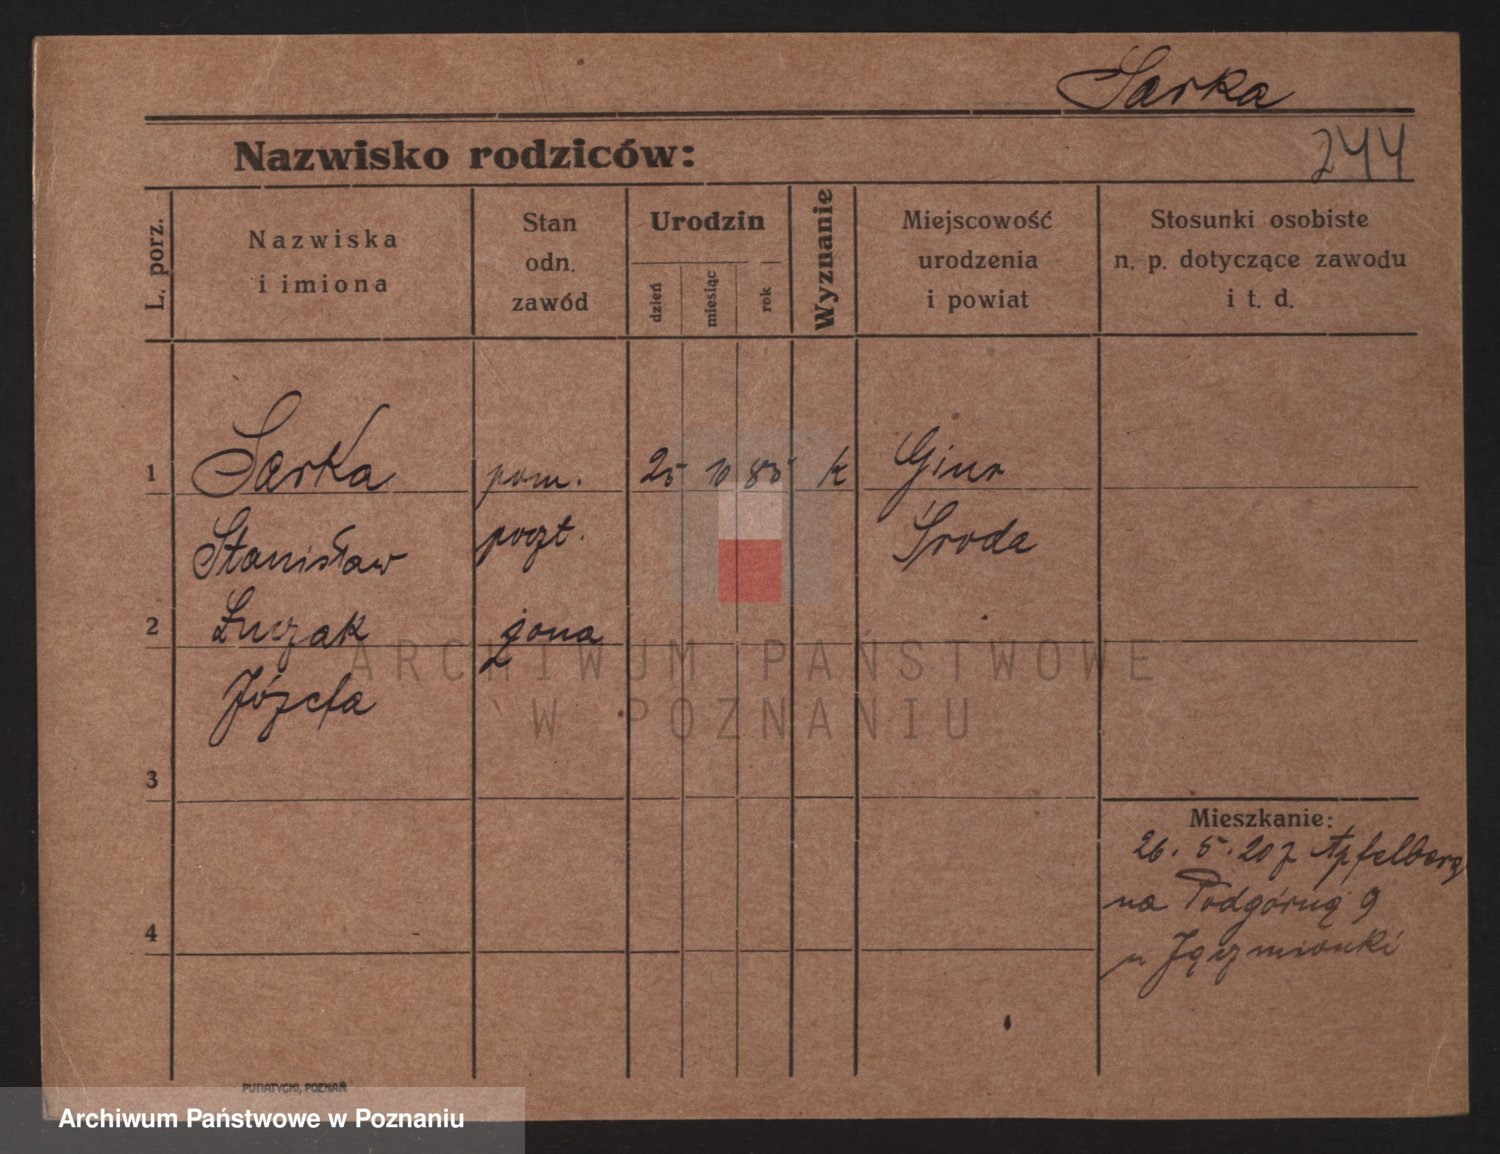 Sarka
244
Nazwisko rodziców:
L. porz.
Nazwiska
i imiona
Stan
odn.
zawód
Urodzin
dzień
miesiąc
rok
Wyznanie
Miejscowość
urodzenia
i powiat
Stosunki osobiste
n. p. dotyczące zawodu
i t. d.
1 Sarka pom. 25 10 85 k
Stanisław poczt. Środa
2 Łuczak żona
Józefa
3
4
Mieszkanie:
26. 5. 20 z Apfelberg
na Podgórną 9
u Jęczmionki
ARCHIWUM PAŃSTWOWE
W POZNANIU
PUTIATYCKI, POZNAŃ
Archiwum Państwowe w Poznaniu